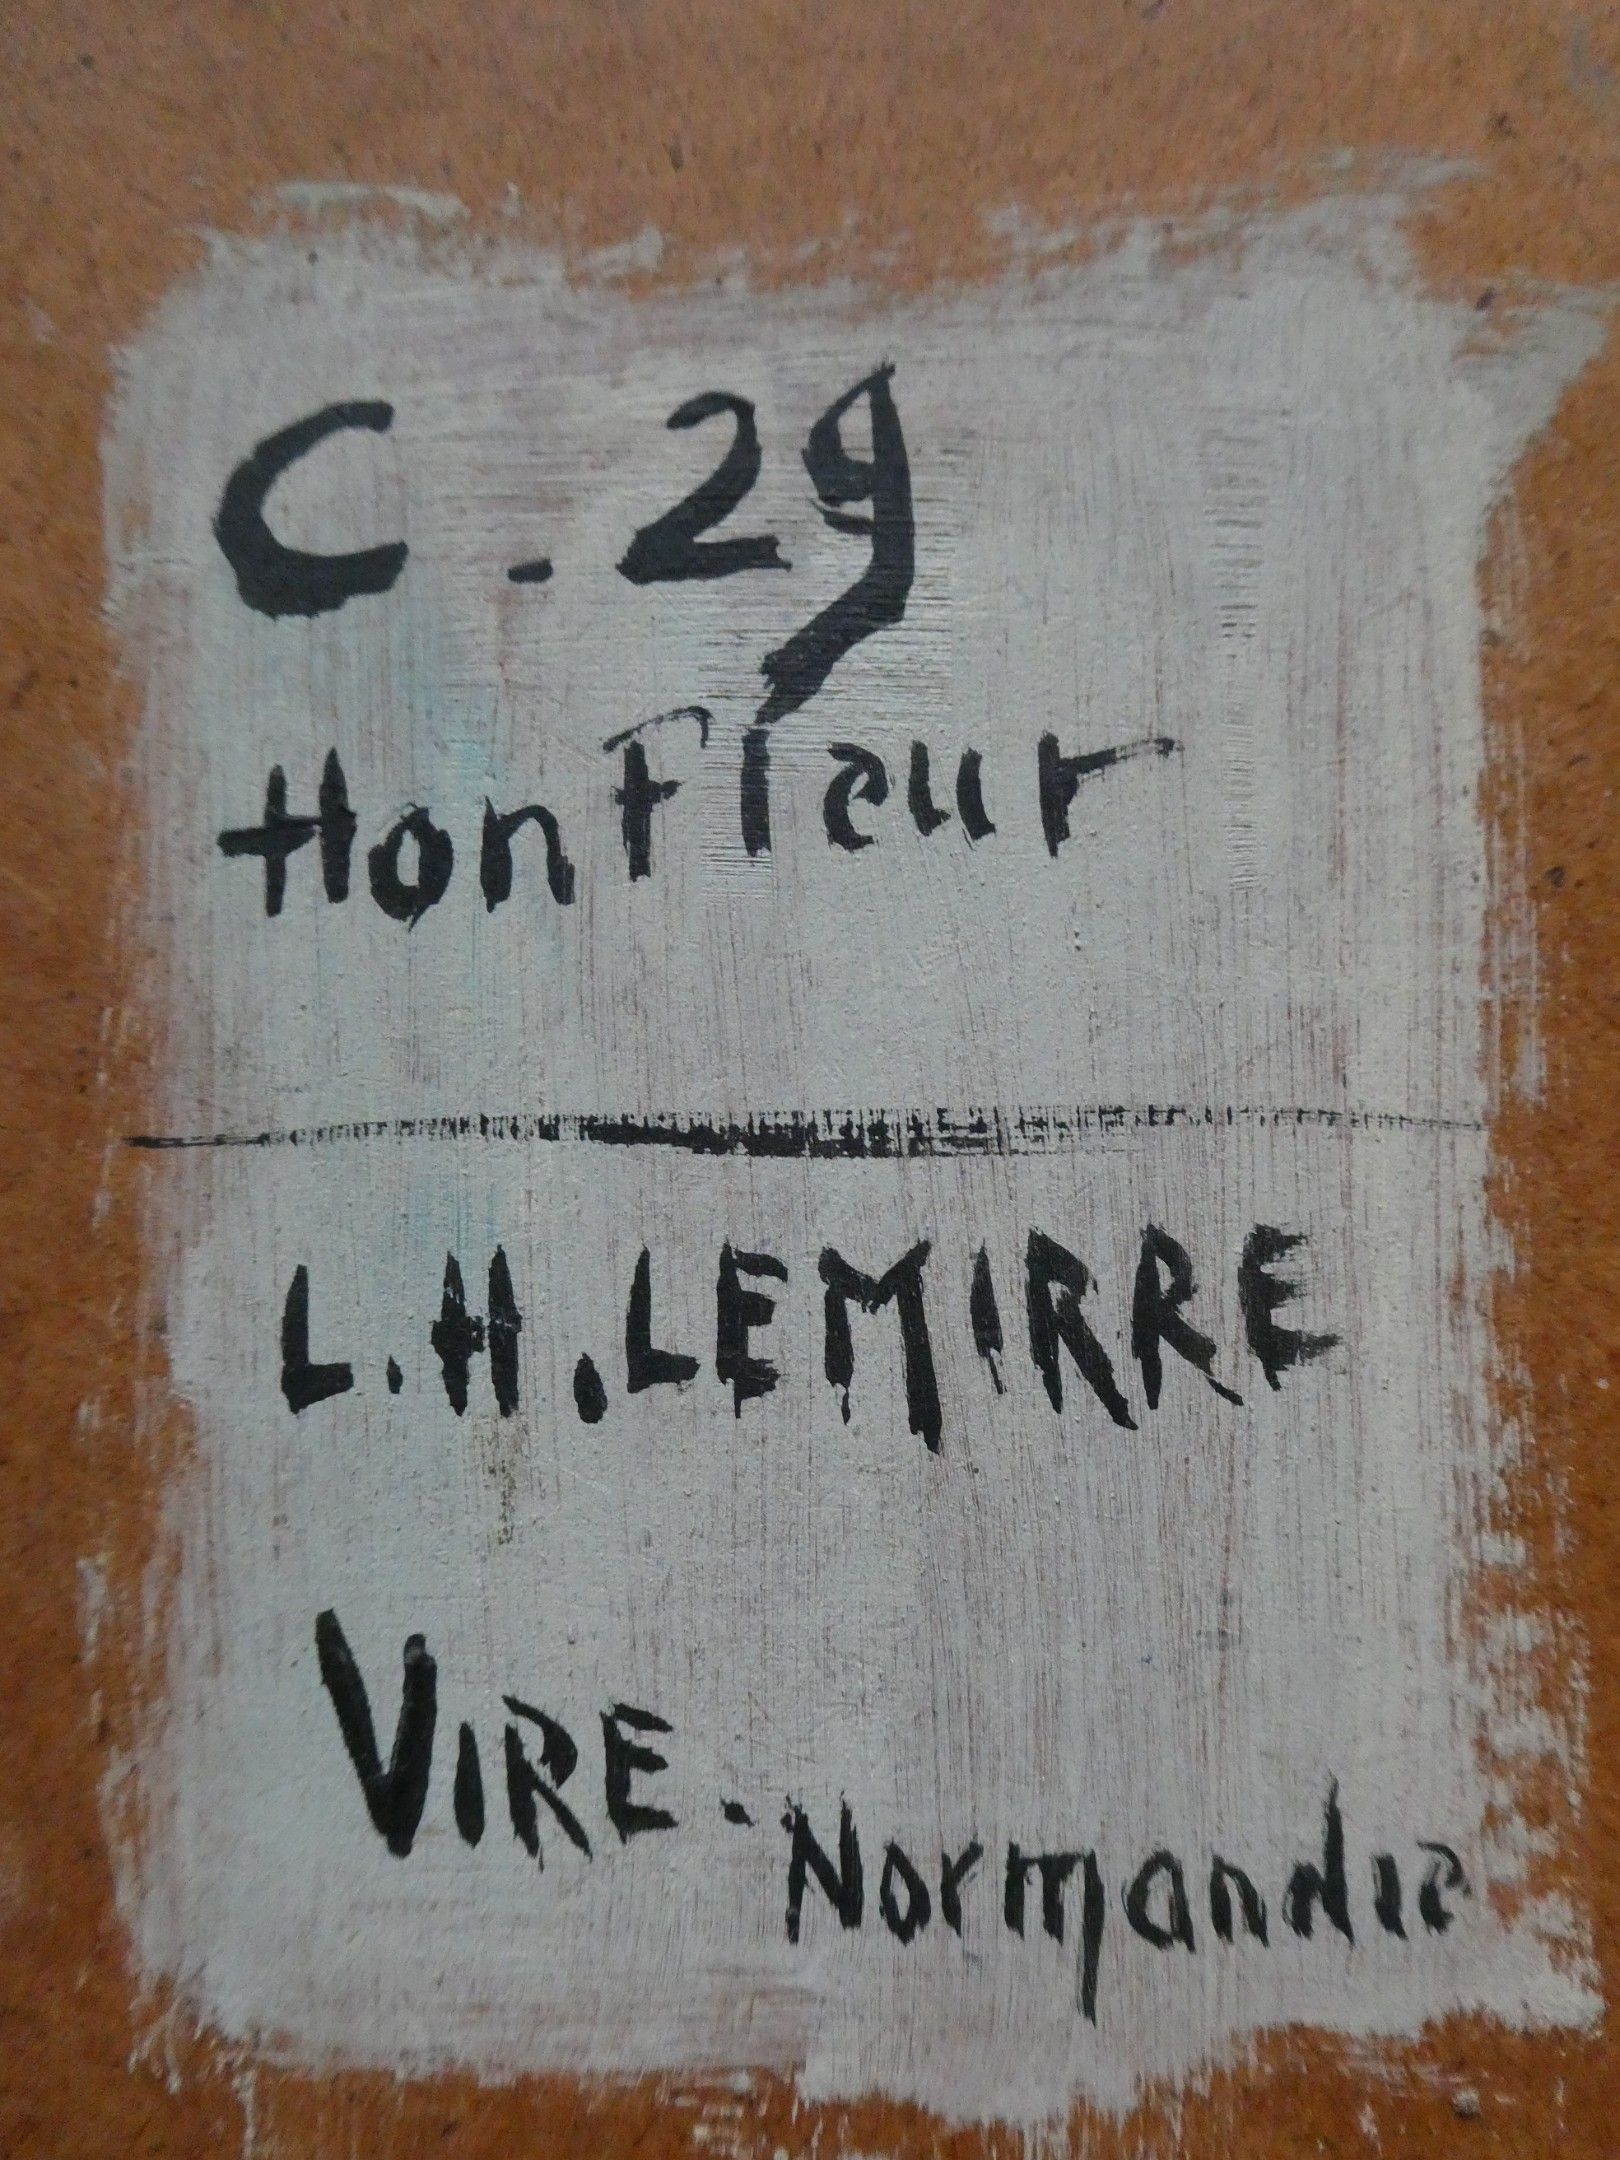 C. 29
HonFleur
L.H.LEMIRRE
VIRE. Normandie